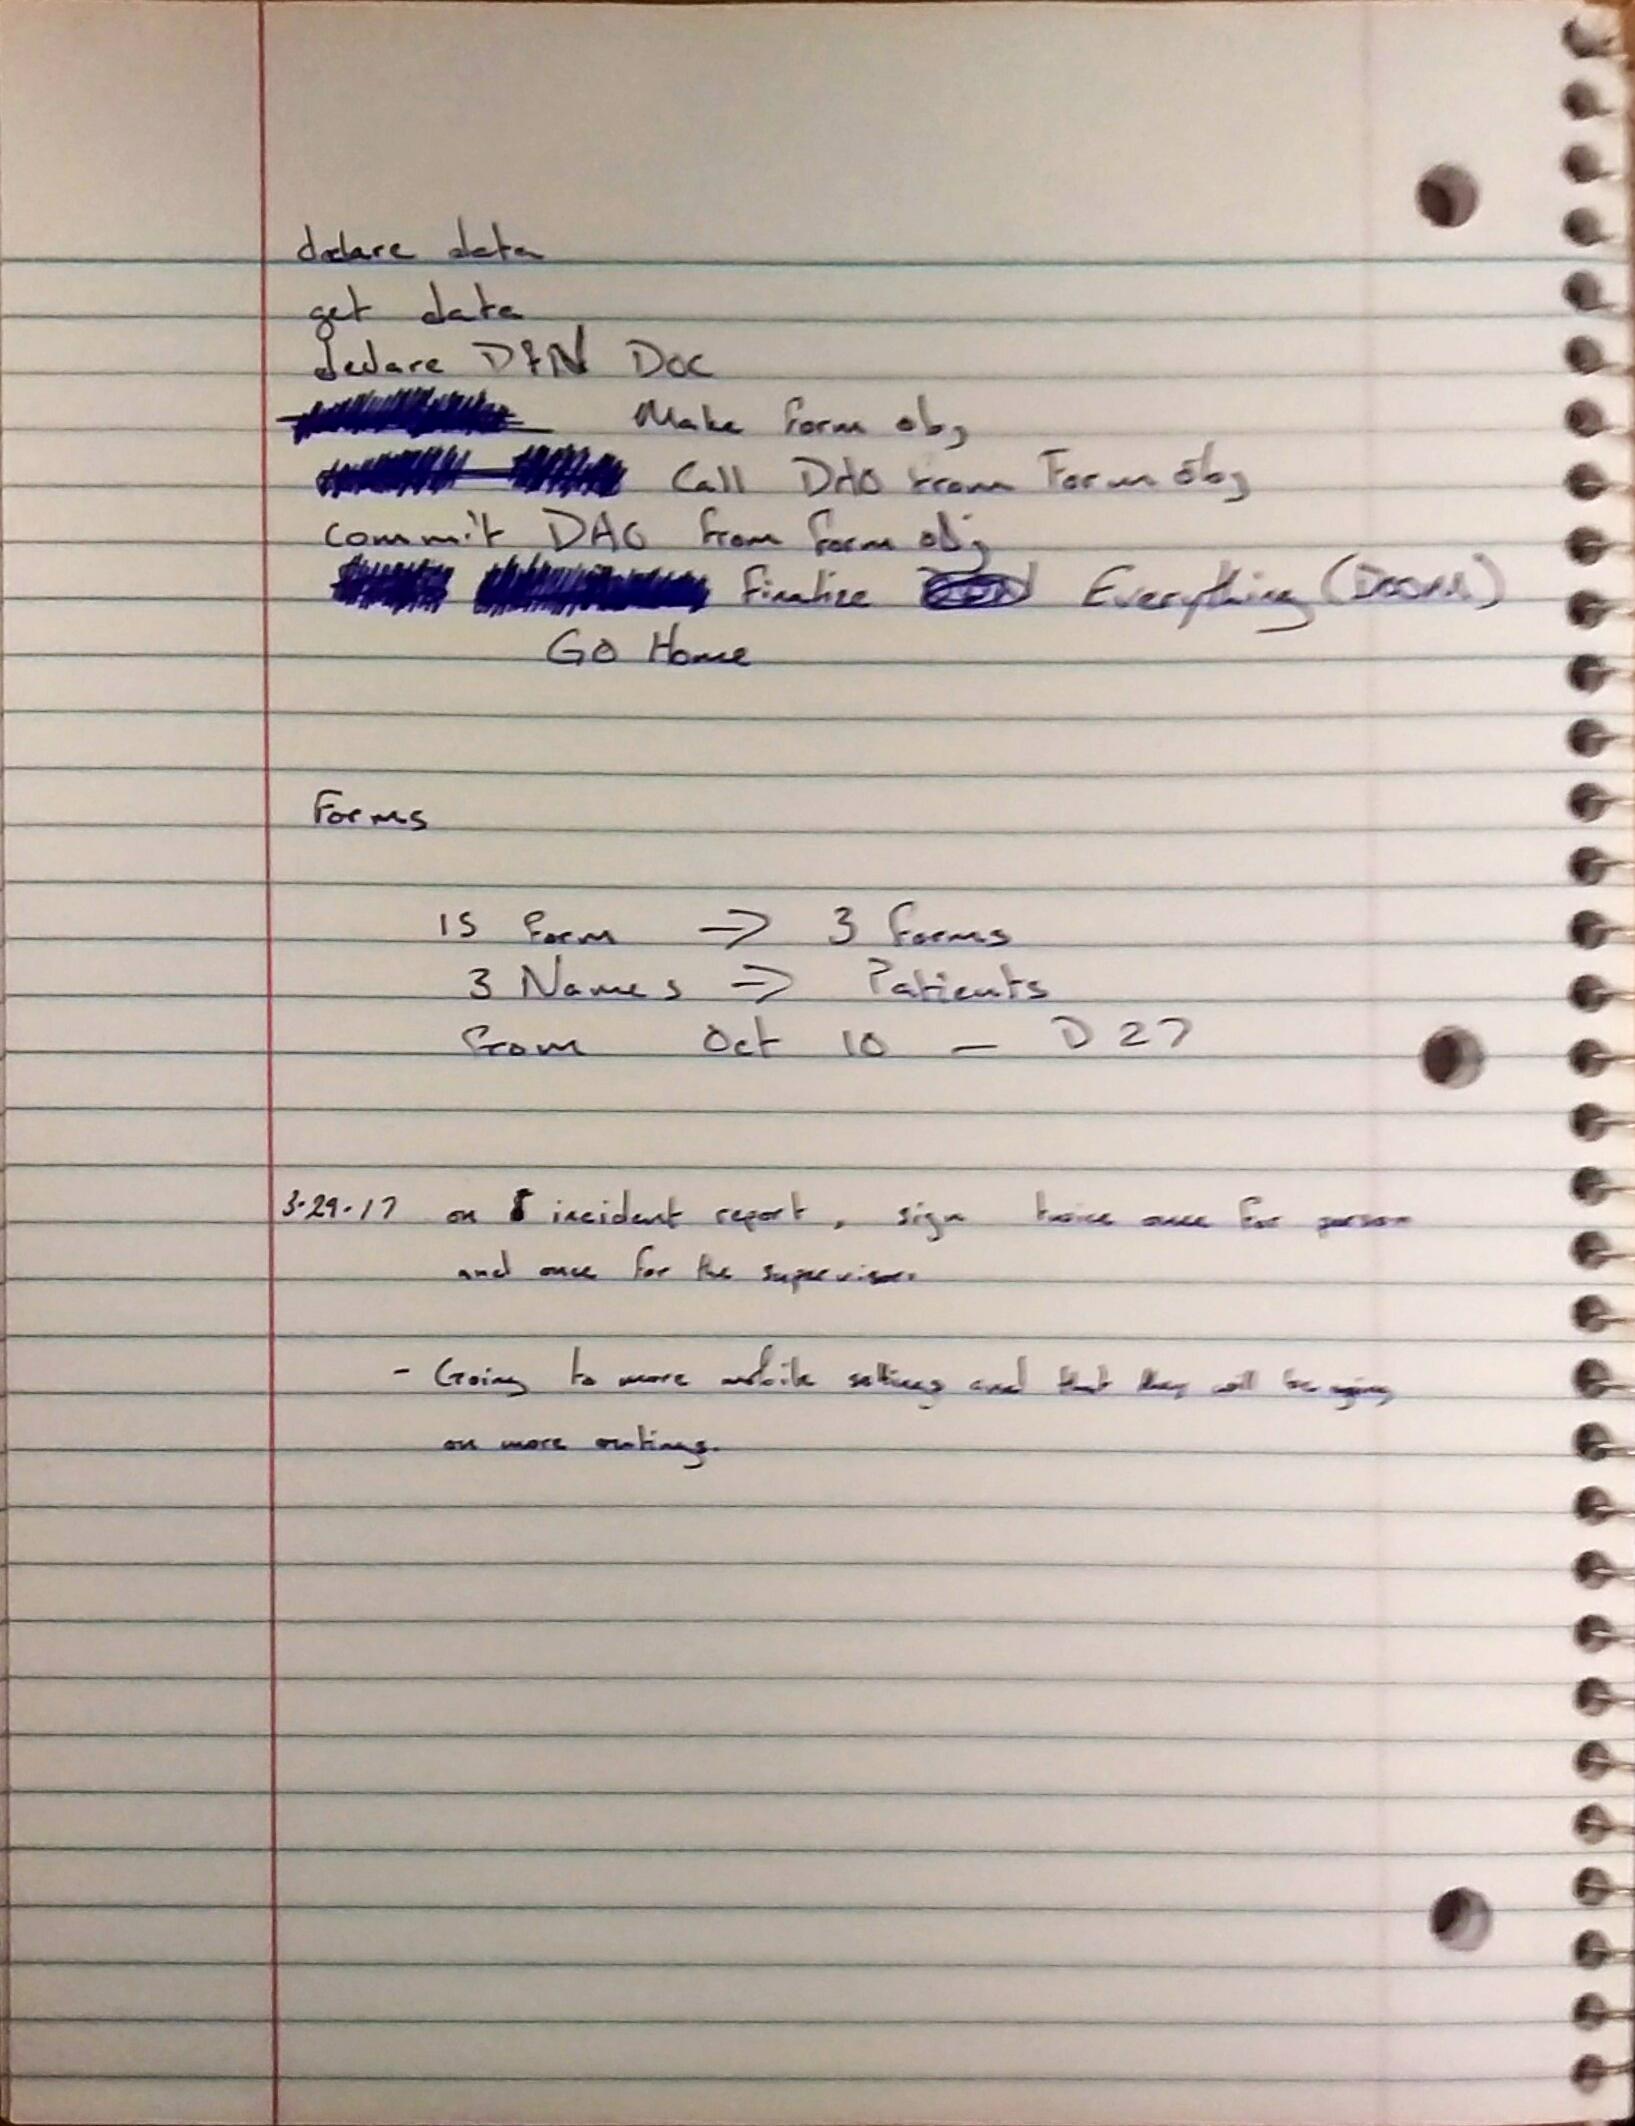 declare data
get data
declare Doc
Make form obj
Call DAO from Form obj
commit DAO from form obj
finalize Everything (DOOM)
GO Home
Forms
15 form => 3 forms
3 Names => Patients
from Oct 10 - D 27
3-29-17 on incident report, sign twice once for person
and once for the supervisor.
- Going to more mobile settings and that they will be
on more outings.